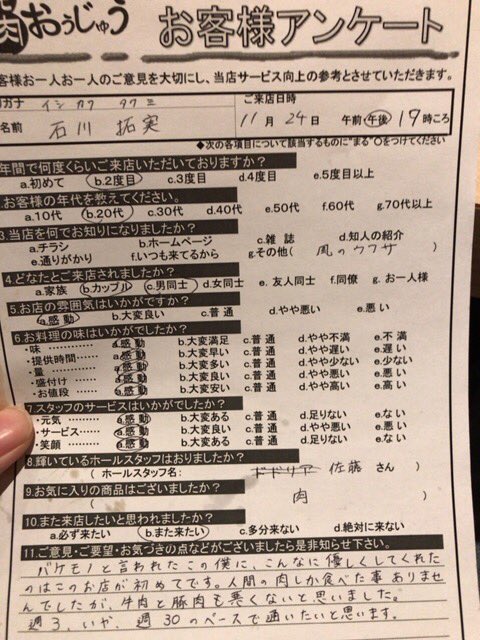 肉おうじゅう お客様アンケート
客様お一人お一人のご意見を大切にし、当店サービス向上の参考とさせていただきます。
リガナ イシカワ タクミ ご来店日時
名前 石川 拓実 11月24日 午前 午後 19時ころ
◆次の各項目について該当するものに"まる"○をつけてください
年間で何度くらいご来店いただいておりますか?
a.初めて b.2度目 c.3度目 d.4度目 e.5度目以上
.お客様の年代を教えてください。
a.10代 b.20代 c.30代 d.40代 e.50代 f.60代 g.70代以上
3.当店を何でお知りになりましたか?
a.チラシ b.ホームページ c.雑 誌 d.知人の紹介
e.通りがかり f.いつも来てるから g.その他( 風のウワサ )
4.どなたとご来店されましたか?
a.家族 b.カップル c.男同士 d.女同士 e.友人同士 f.同僚 g.お一人様
5.お店の雰囲気はいかがですか?
a.感動 b.大変良い c.普 通 d.やや悪い e.悪 い
6.お料理の味はいかがでしたか?
・味 ……… a.感 動 b.大変満足 c.普 通 d.やや不満 e.不 満
・提供時間…… a.感 動 b.大変早い c.普 通 d.やや遅い e.遅 い
・量 ……… a.感 動 b.大変多い c.普 通 d.やや少ない e.少ない
・盛付け …… a.感 動 b.大変良い c.普 通 d.やや悪い e.悪 い
・お値段 …… a.感 動 b.大変安い c.普 通 d.やや高い e.高 い
7.スタッフのサービスはいかがでしたか?
・元気 ……… a.感 動 b.大変ある c.普 通 d.足りない e.な い
・サービス…… a.感 動 b.大変良い c.普 通 d.やや悪い e.悪 い
・笑顔 ……… a.感 動 b.大変ある c.普 通 d.足りない e.な い
8.輝いているホールスタッフはおりましたか?
( ホールスタッフ名: ドドリア 佐藤 さん )
9.お気に入りの商品はございましたか?
( 肉 )
10.また来店したいと思われましたか?
a.必ず来たい b.また来たい c.多分来ない d.絶対に来ない
11.ご意見・ご要望・お気づきの点などがございましたら是非知らせ下さい。
バケモノと言われたこの僕に、こんなに優しくしてくれた
のはこのお店が初めてです。人間の肉しか食べた事ありませ
んでしたが、牛肉と豚肉も悪くないと思いました。
週3、いや、週30のペースで通いたいと思います。